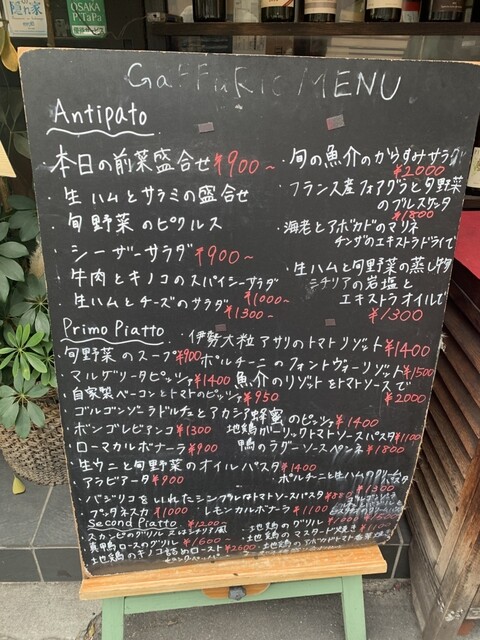 OSAKA
PiTaPa
GaFFuRio MENU
Antipato
・本日の前菜盛合せ ¥900~
・生ハムとサラミの盛合せ
・旬野菜のピクルス
・シーザーサラダ ¥900~
・牛肉とキノコのスパイシーサラダ
¥1000~
・生ハムとチーズのサラダ ¥1300-
・旬の魚介のからすみサラダ
¥2000
・フランス産フォアグラと旬野菜
のブルスケッタ
¥1800
・海老とアボカドのマリネ
チンザのエキストラドライで
・生ハムと旬野菜の蒸し物
シチリアの岩塩と
エキストラオイルで
¥1300
Primo Piatto
・伊勢大粒アサリのトマトリゾット ¥1400
旬野菜のスープ ¥900
ポルチーニのフォンドヴォーリゾット ¥1500
マルゲリータピッツァ ¥1400
魚介のリゾットをトマトソースで
¥2000
・自家製ベーコンとトマトのピッツァ ¥950
・ゴルゴンゾーラドルチェとアカシア蜂蜜のピッツァ ¥1400
・ボンゴレビアンコ ¥1300
地鶏ガーリックトマトソースパスタ ¥1100
・ローマカルボナーラ ¥900
鴨のラグーソースペンネ ¥1800
・生ウニと旬野菜のオイルパスタ ¥1400
・アラビアータ ¥900
ポルチーニと生ハムのクリームパスタ
¥1300
・バジリコをいれたシンプルなトマトソースパスタ ¥880
・プッタネスカ ¥1000
・レモンカルボナーラ ¥1100
Second Piatto
¥1200-
・スカンピのグリル 又はシチリア風
・真鴨ロースのグリル ¥1600-
・地鶏のキノコ詰めロースト ¥2600
・地鶏のグリル
・地鶏のマスタード焼き